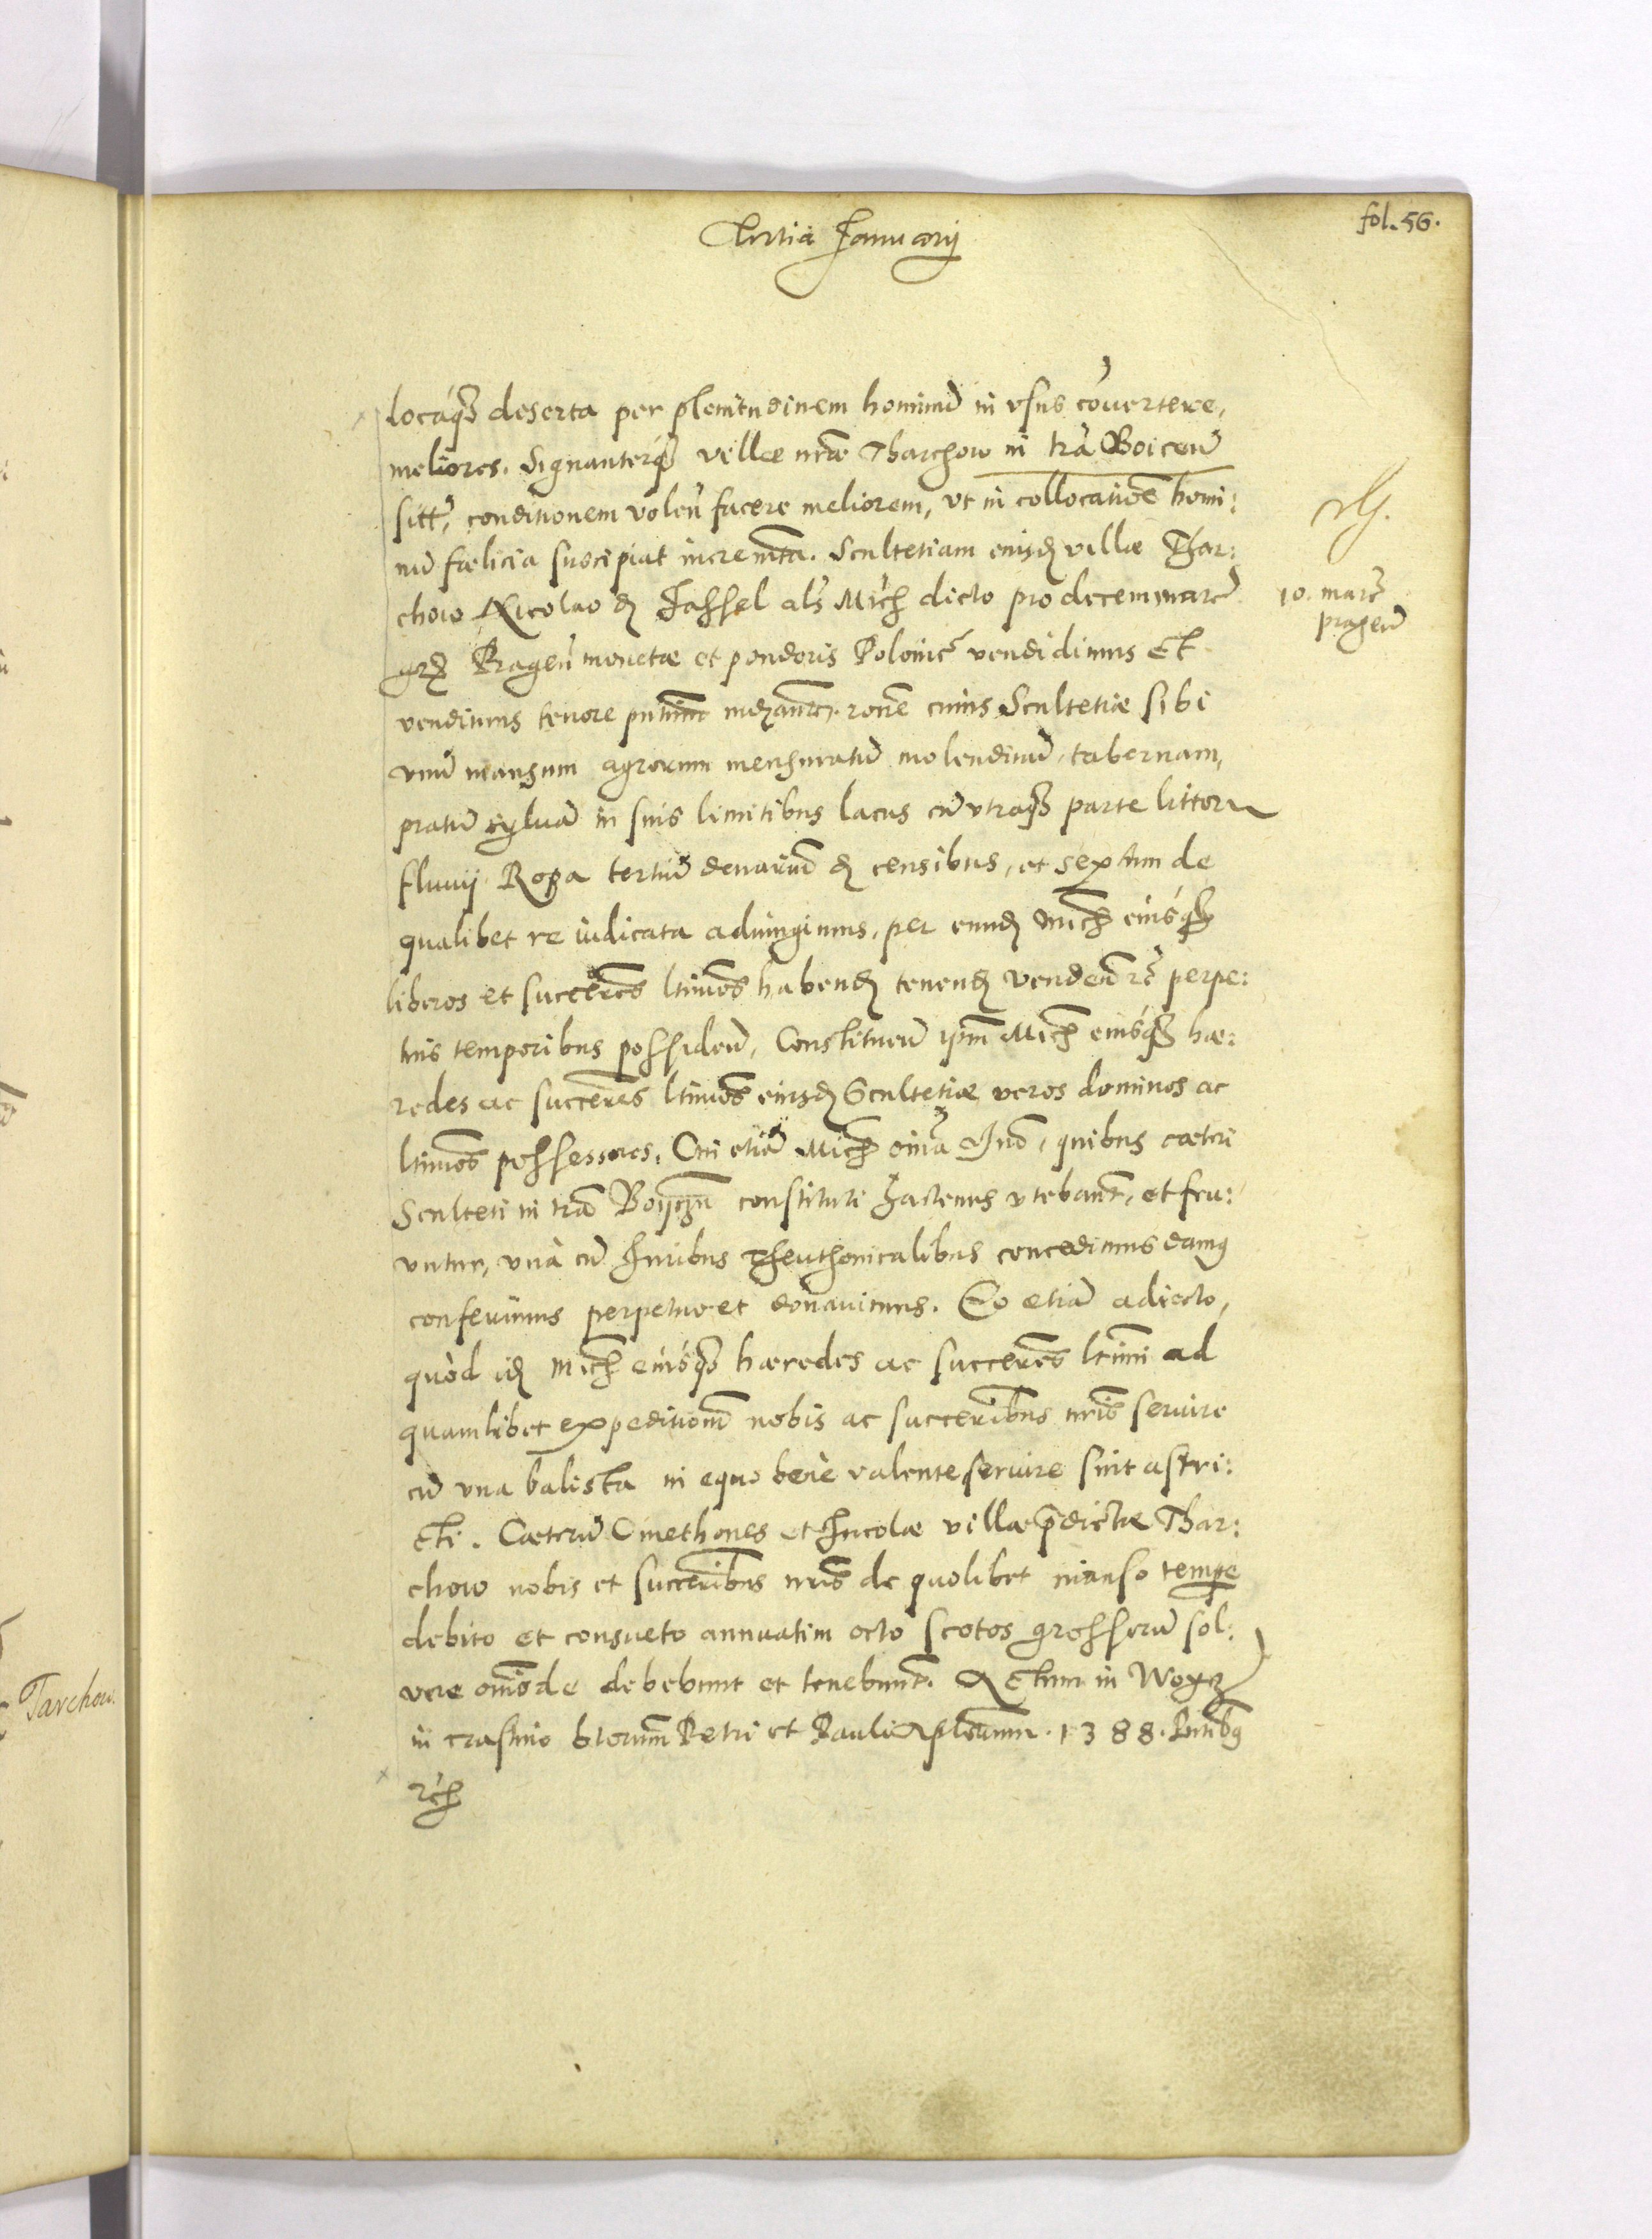 fol. 56.
Tertia Januarij
locáq₃ deserta per plenitudinem hominū in vsus cōuertere,
meliores. Signanterq́₃ villæ nr̄æ Tharchow in tr̄a Boicen̄
sitt̄, conditionem volen̄ facere meliorem, vt in collocatiōe homi:
nū fœlicia suscipiat increm̄ta. Scultetiam eiusd̨ villæ Thar:
chow Nicolao d̨ Jassel al̄s Mich dicto pro decem marc̄
10. marc̄
pragen̄
grꝫ Pragen̄ monetæ et ponderis Polonic̄ vendidimus Et
vendimus tenore pn̄tium rōne cuius Scultetiæ sibi
vnū mansum agrorum mensuratū molendinū, tabernam,
pratū syluā in suis limitibus lacus cū vtraq₃ parte littoru
fluuij Ropa tertiū denariū d̨ censibus, et sextum de
qualibet re iudicata adiungimus, per eund̨ Mich̄ eiúsq₃
liberos et succēres ltimos habend̨ tenend̨ vendēn rc̄ perpe:
tuis temporibus possiden̄, Constituen̄ ipm̄ Mich̄ eiúsq₃ hæ:
redes ac succēres ltimos eiusd̨ Scultetiæ veros dominos ac
ltimos possessores, Cui etiā Mich̄ oīa Iura, quibus cæteri
Sculteti in tr̄a Boijczn̄ constituti hactenus vtebant̄, et fru:
untur, vnà cū Iuribus Theuthonicalibus concedimus damꝰ
conferimus perpetuo et donauimus. Eo etiā adiecto,
quòd id̨ Mich̄ eiúsq₃ hæredes ac succēres ltimi ad
quamlibet expeditionē nobis ac succēribus nr̄is seruire
cū vna balista in equo bene valente seruire sint astri:
cti. Cæterū Cmethones et Incolæ villæ p̄dictæ Thar:
chow nobis et succēribus nr̄is de quolibet manso tempe
debito et consueto annuatim octo scotos grossorū sol:
vere om̄ode debebunt et tenebunt̄. Actum in Woyꝫ
in crastino btorum Petri et Pauli Aplorum. 1388. Pn̄tibꝰ
rc̄
Tarchow.